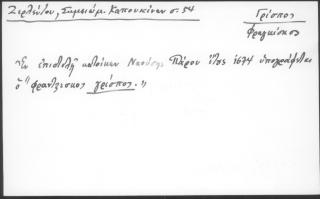 Ζερλέντου, Σημειώμ. Καπουκίνων σ. 54
Γρίσπος
Φραγκίσκος
Ἐν ἐπιστολῇ κατοίκων Ναούσης Πάρου ἔτους 1674 ὑπογράφεται
ὁ "φραντζισκος γρίσπος."